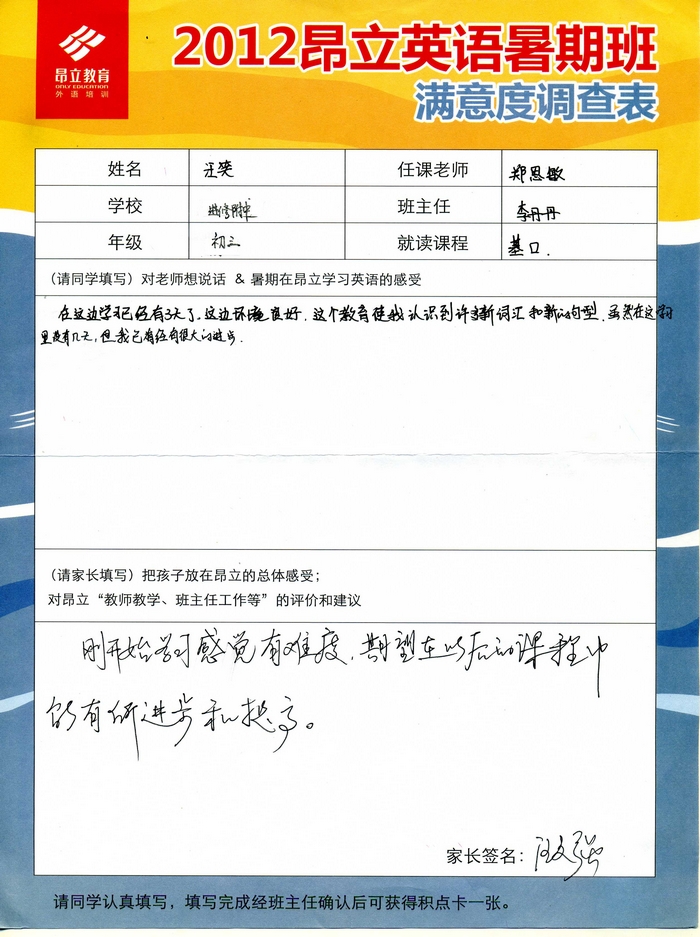 昂立教育
ONLY EDUCATION
外语培训
2012昂立英语暑期班
满意度调查表
姓名 汪奕 任课老师 郑恩敏
学校 班主任 李丹丹
年级 初三 就读课程 基口.
(请同学填写) 对老师想说话 & 暑期在昂立学习英语的感受
在这边学习已经有3天了。这边环境良好，这个教育使我认识到许多新词汇和新的句型。虽然在这
里没有几天，但我已有经有很大的进步.
(请家长填写) 把孩子放在昂立的总体感受；
对昂立“教师教学、班主任工作等”的评价和建议
刚开始学习感觉有难度，期望在以后的课程中
能有所进步和提高。
家长签名：汪文强
请同学认真填写，填写完成经班主任确认后可获得积点卡一张。